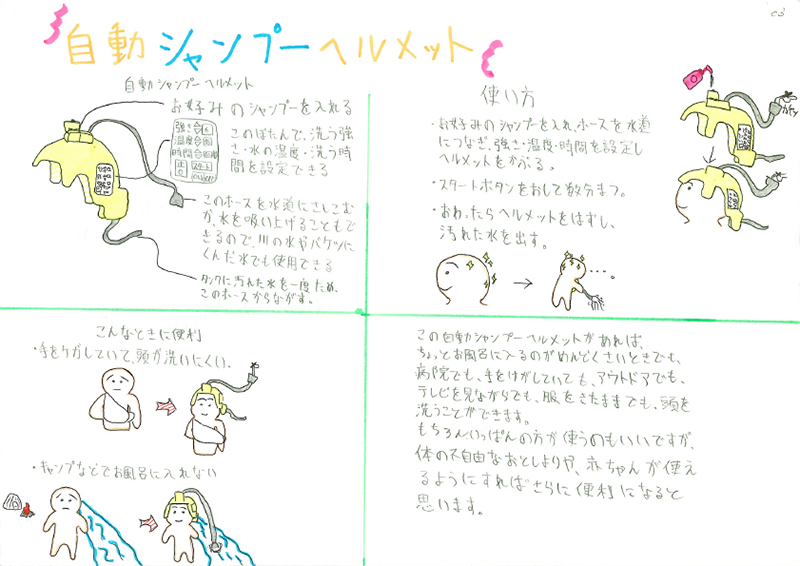 c3
自動シャンプーヘルメット
自動シャンプーヘルメット
お好みのシャンプーを入れる
強さ
温度
時間
このぼたんで、洗う強
さ・水の温度・洗う時
間を設定できる
このホースを水道にさしこむ
が、水を吸い上げることもで
きるので、川の水やバケツに
くんだ水でも使用できる
タンクに汚れた水を一度ため、
このホースからながす。
使い方
・お好みのシャンプーを入れ、ホースを水道
につなぎ、強さ・温度・時間を設定し
ヘルメットをかぶる。
・スタートボタンをおして数分まつ。
・おわったらヘルメットをはずし、
汚れた水を出す。
こんなときに便利
・手をケガしていて、頭が洗いにくい.
・キャンプなどでお風呂に入れない
この自動シャンプーヘルメットがあれば、
ちょっとお風呂に入るのがめんどくさいときでも、
病院でも、手をけがしていても、アウトドアでも、
テレビを見ながらでも、服をきたままでも、頭を
洗うことができます。
もちろんいっぱんの方が使うのもいいですが、
体の不自由なおとしよりや、赤ちゃんが使え
るようにすればさらに便利になると
思います。